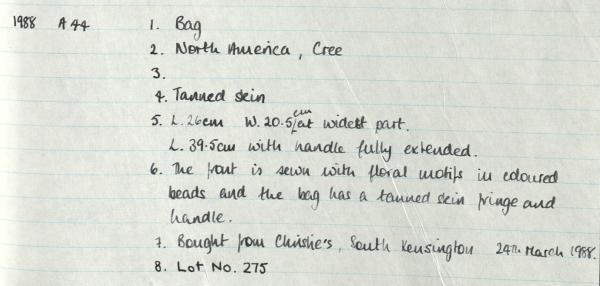 1988 A 44 1. Bag
2. North America, Cree
3.
4. Tanned skin
5. L. 26cm W. 20.5cm at widest part.
L. 39.5cm with handle fully extended.
6. The front is sewn with floral motifs in coloured
beads and the bag has a tanned skin fringe and
handle.
7. Bought from Christie's, South Kensington 24th March 1988.
8. Lot No. 275